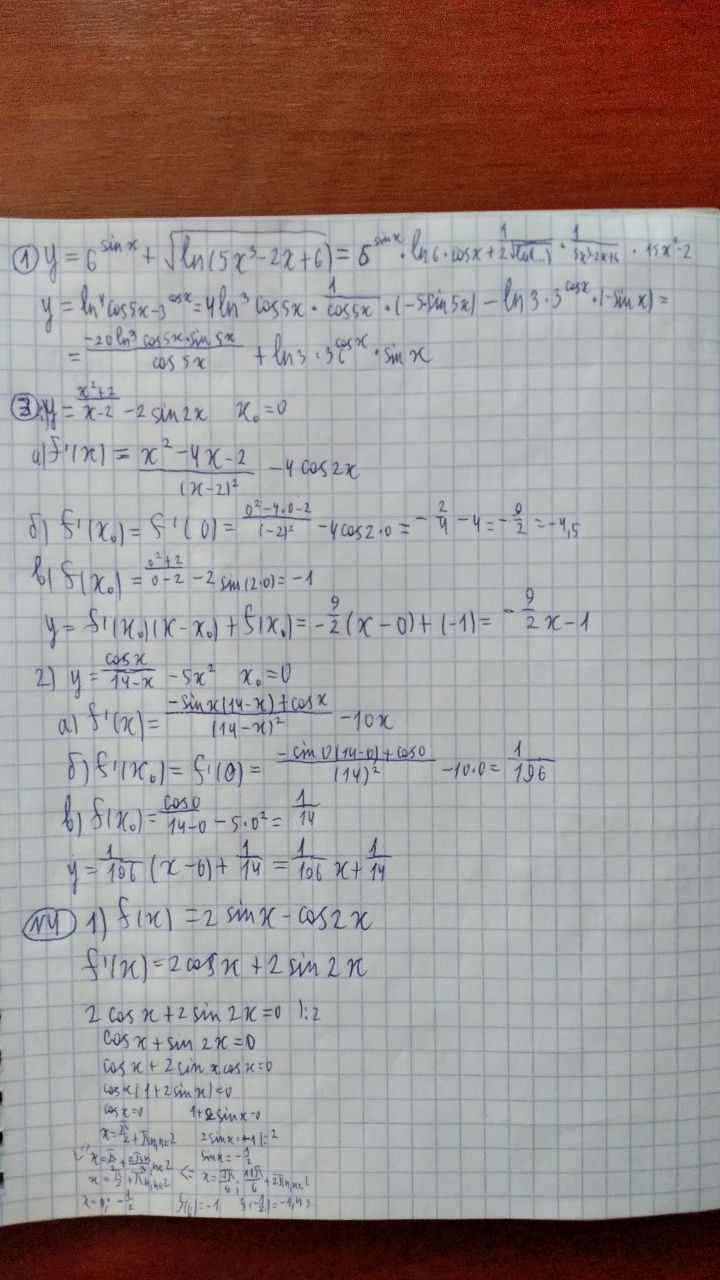 ① y = 6^sinx + √ln(5x³-2x+6) = 6^sinx · ln6 · cosx + 1/2√ln(...) · 1/5x³-2x+6 · 15x²-2
y = ln⁴cos5x - 3^cosx = 4ln³cos5x · 1/cos5x · (-5sin5x) - ln3 · 3^cosx · (-sinx) =
= -20ln³cos5x·sin5x/cos5x + ln3 · 3^cosx · sinx
③ y = x²+2/x-2 - 2sin2x x₀=0
а) f'(x) = x²-4x-2/(x-2)² - 4cos2x
б) f'(x₀) = f'(0) = 0²-4·0-2/(-2)² - 4cos2·0 = -2/4 - 4 = -9/2 = -4,5
в) f(x₀) = 0²+2/0-2 - 2sin(2·0) = -1
y = f'(x₀)(x-x₀) + f(x₀) = -9/2(x-0) + (-1) = -9/2x - 1
2) y = cosx/14-x - 5x² x₀=0
а) f'(x) = -sinx(14-x)+cosx/(14-x)² - 10x
б) f'(x₀) = f'(0) = -sin0(14-0)+cos0/(14)² - 10·0 = 1/196
в) f(x₀) = cos0/14-0 - 5·0² = 1/14
y = 1/196(x-0) + 1/14 = 1/196x + 1/14
N4 1) f(x) = 2sinx - cos2x
f'(x) = 2cosx + 2sin2x
2cosx + 2sin2x = 0 |:2
cosx + sin2x = 0
cosx + 2sinxcosx = 0
cosx(1+2sinx) = 0
cosx=0 1+2sinx=0
x = π/2 + πn, n∈Z 2sinx = -1 |:2
sinx = -1/2
x = π/2 + πn, n∈Z x = 7π/6; 11π/6 + 2πn, n∈Z